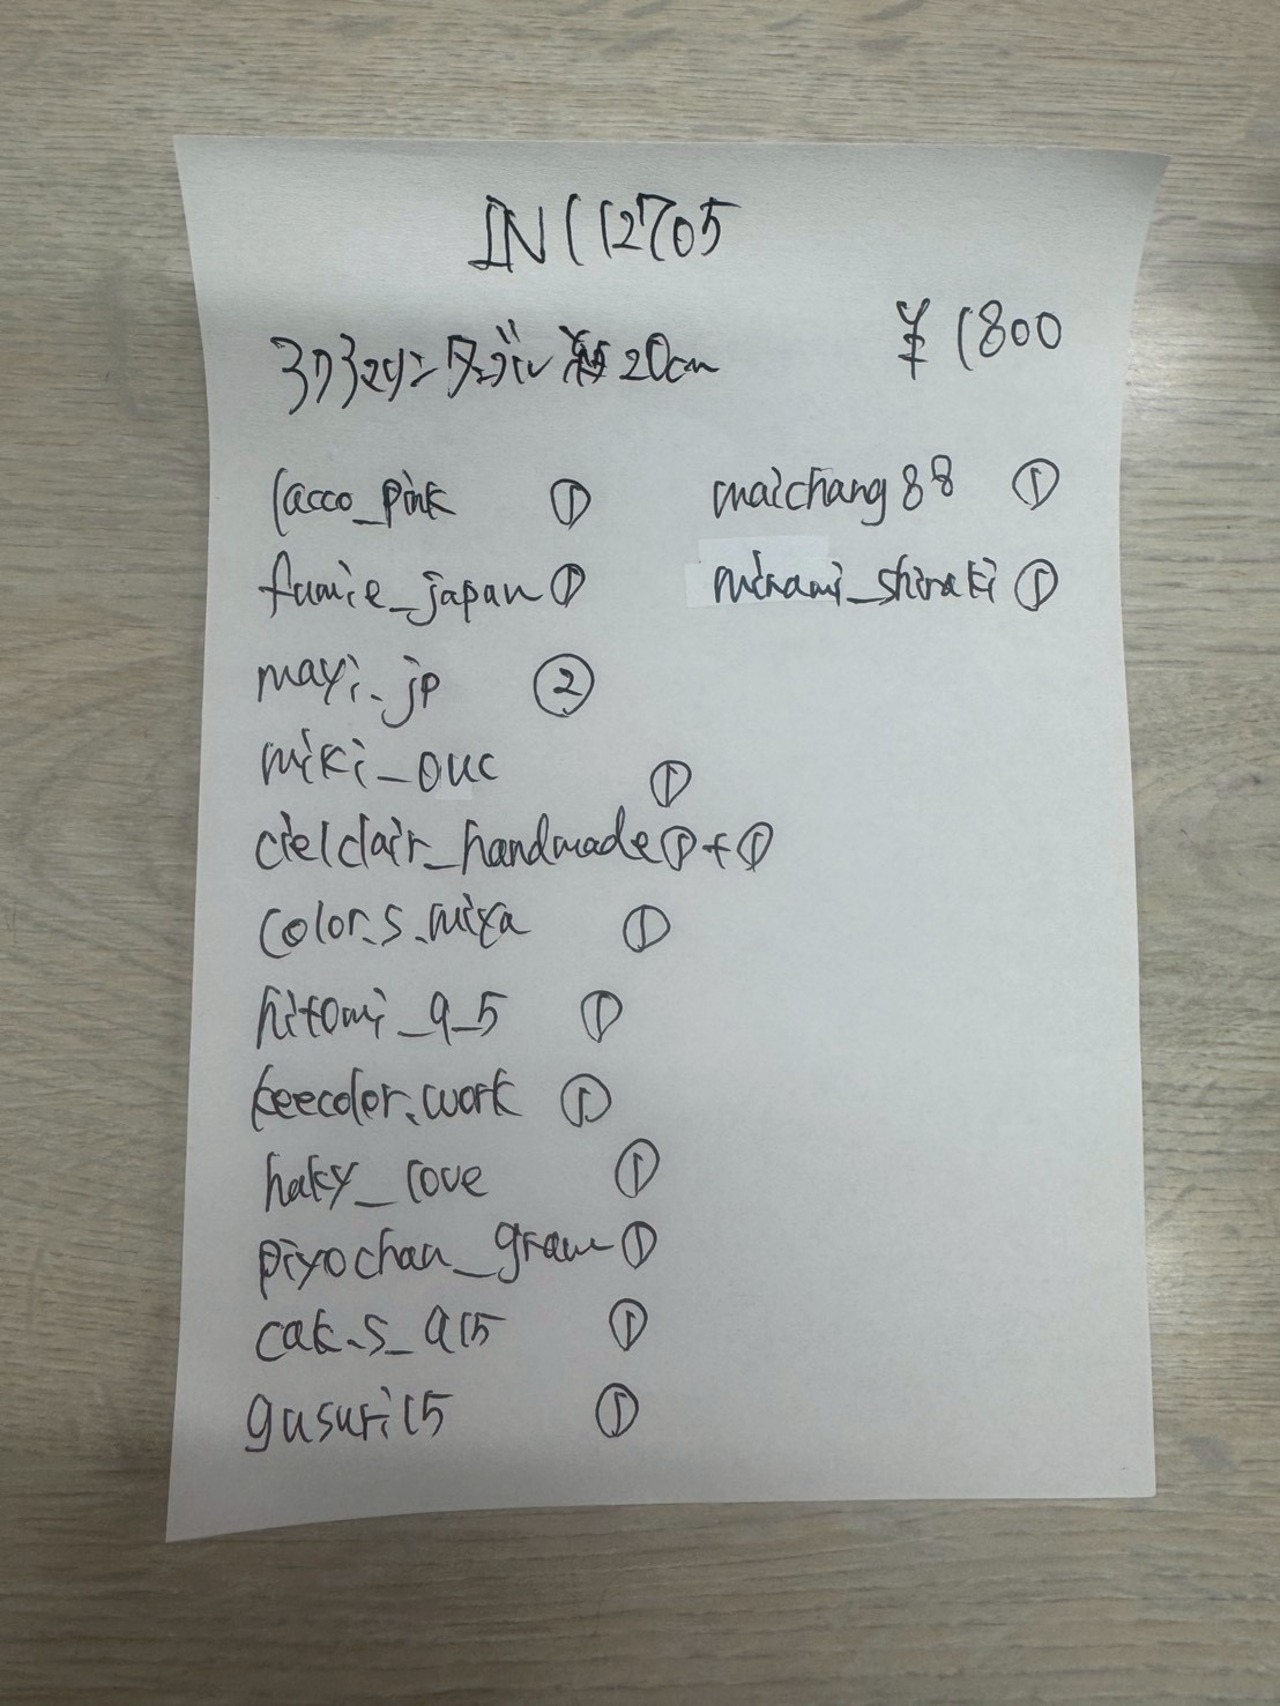 IN112705
¥1800
アクアマリン タンブル 約20cm
lacco_pink ①
fumie_japan ①
mayi._jp ②
miki_ouc ①
cielclair_handmade ①+①
color.s.mixa ①
hitomi_9_5 ①
keecolor.work ①
haky_love ①
piyochan_gram ①
cak.s_915 ①
gusuri15 ①
maichang88 ①
minami_shiraki ①